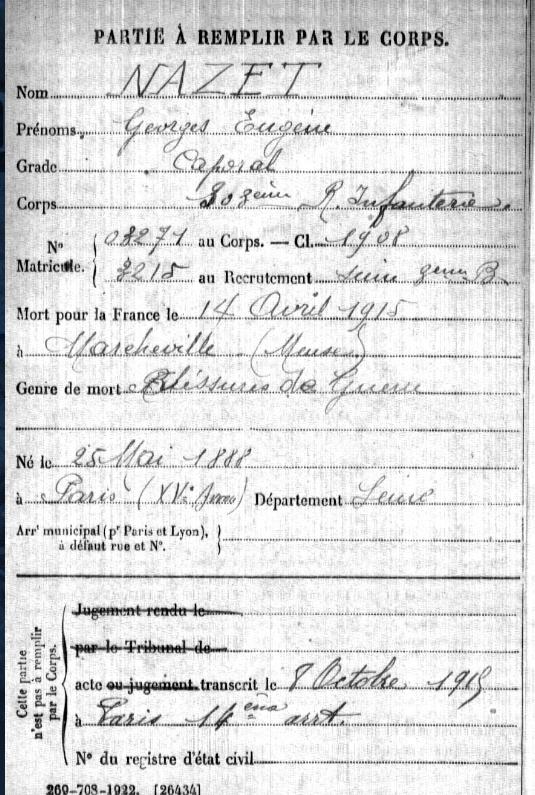 PARTIE À REMPLIR PAR LE CORPS.
Nom NAZET
Prénoms Georges Eugène
Grade Caporal
Corps R. Infanterie
Nº Matricule. 03271 au Corps. — Cl. 1908
3215 au Recrutement Seine B
Mort pour la France le 14 Avril 1915
à Marcheville (Meuse)
Genre de mort Blessures de Guerre
Né le 25 Mai 1888
à Paris (XVe Arrt) Département Seine
Arrt municipal (pr Paris et Lyon),
à défaut rue et Nº.
Cette partie
n'est pas à remplir
par le Corps.
Jugement rendu le
par le Tribunal de
acte ou jugement transcrit le 8 Octobre 1915
à Paris 14ème arrt.
Nº du registre d'état civil
269-708-1922. [26434]